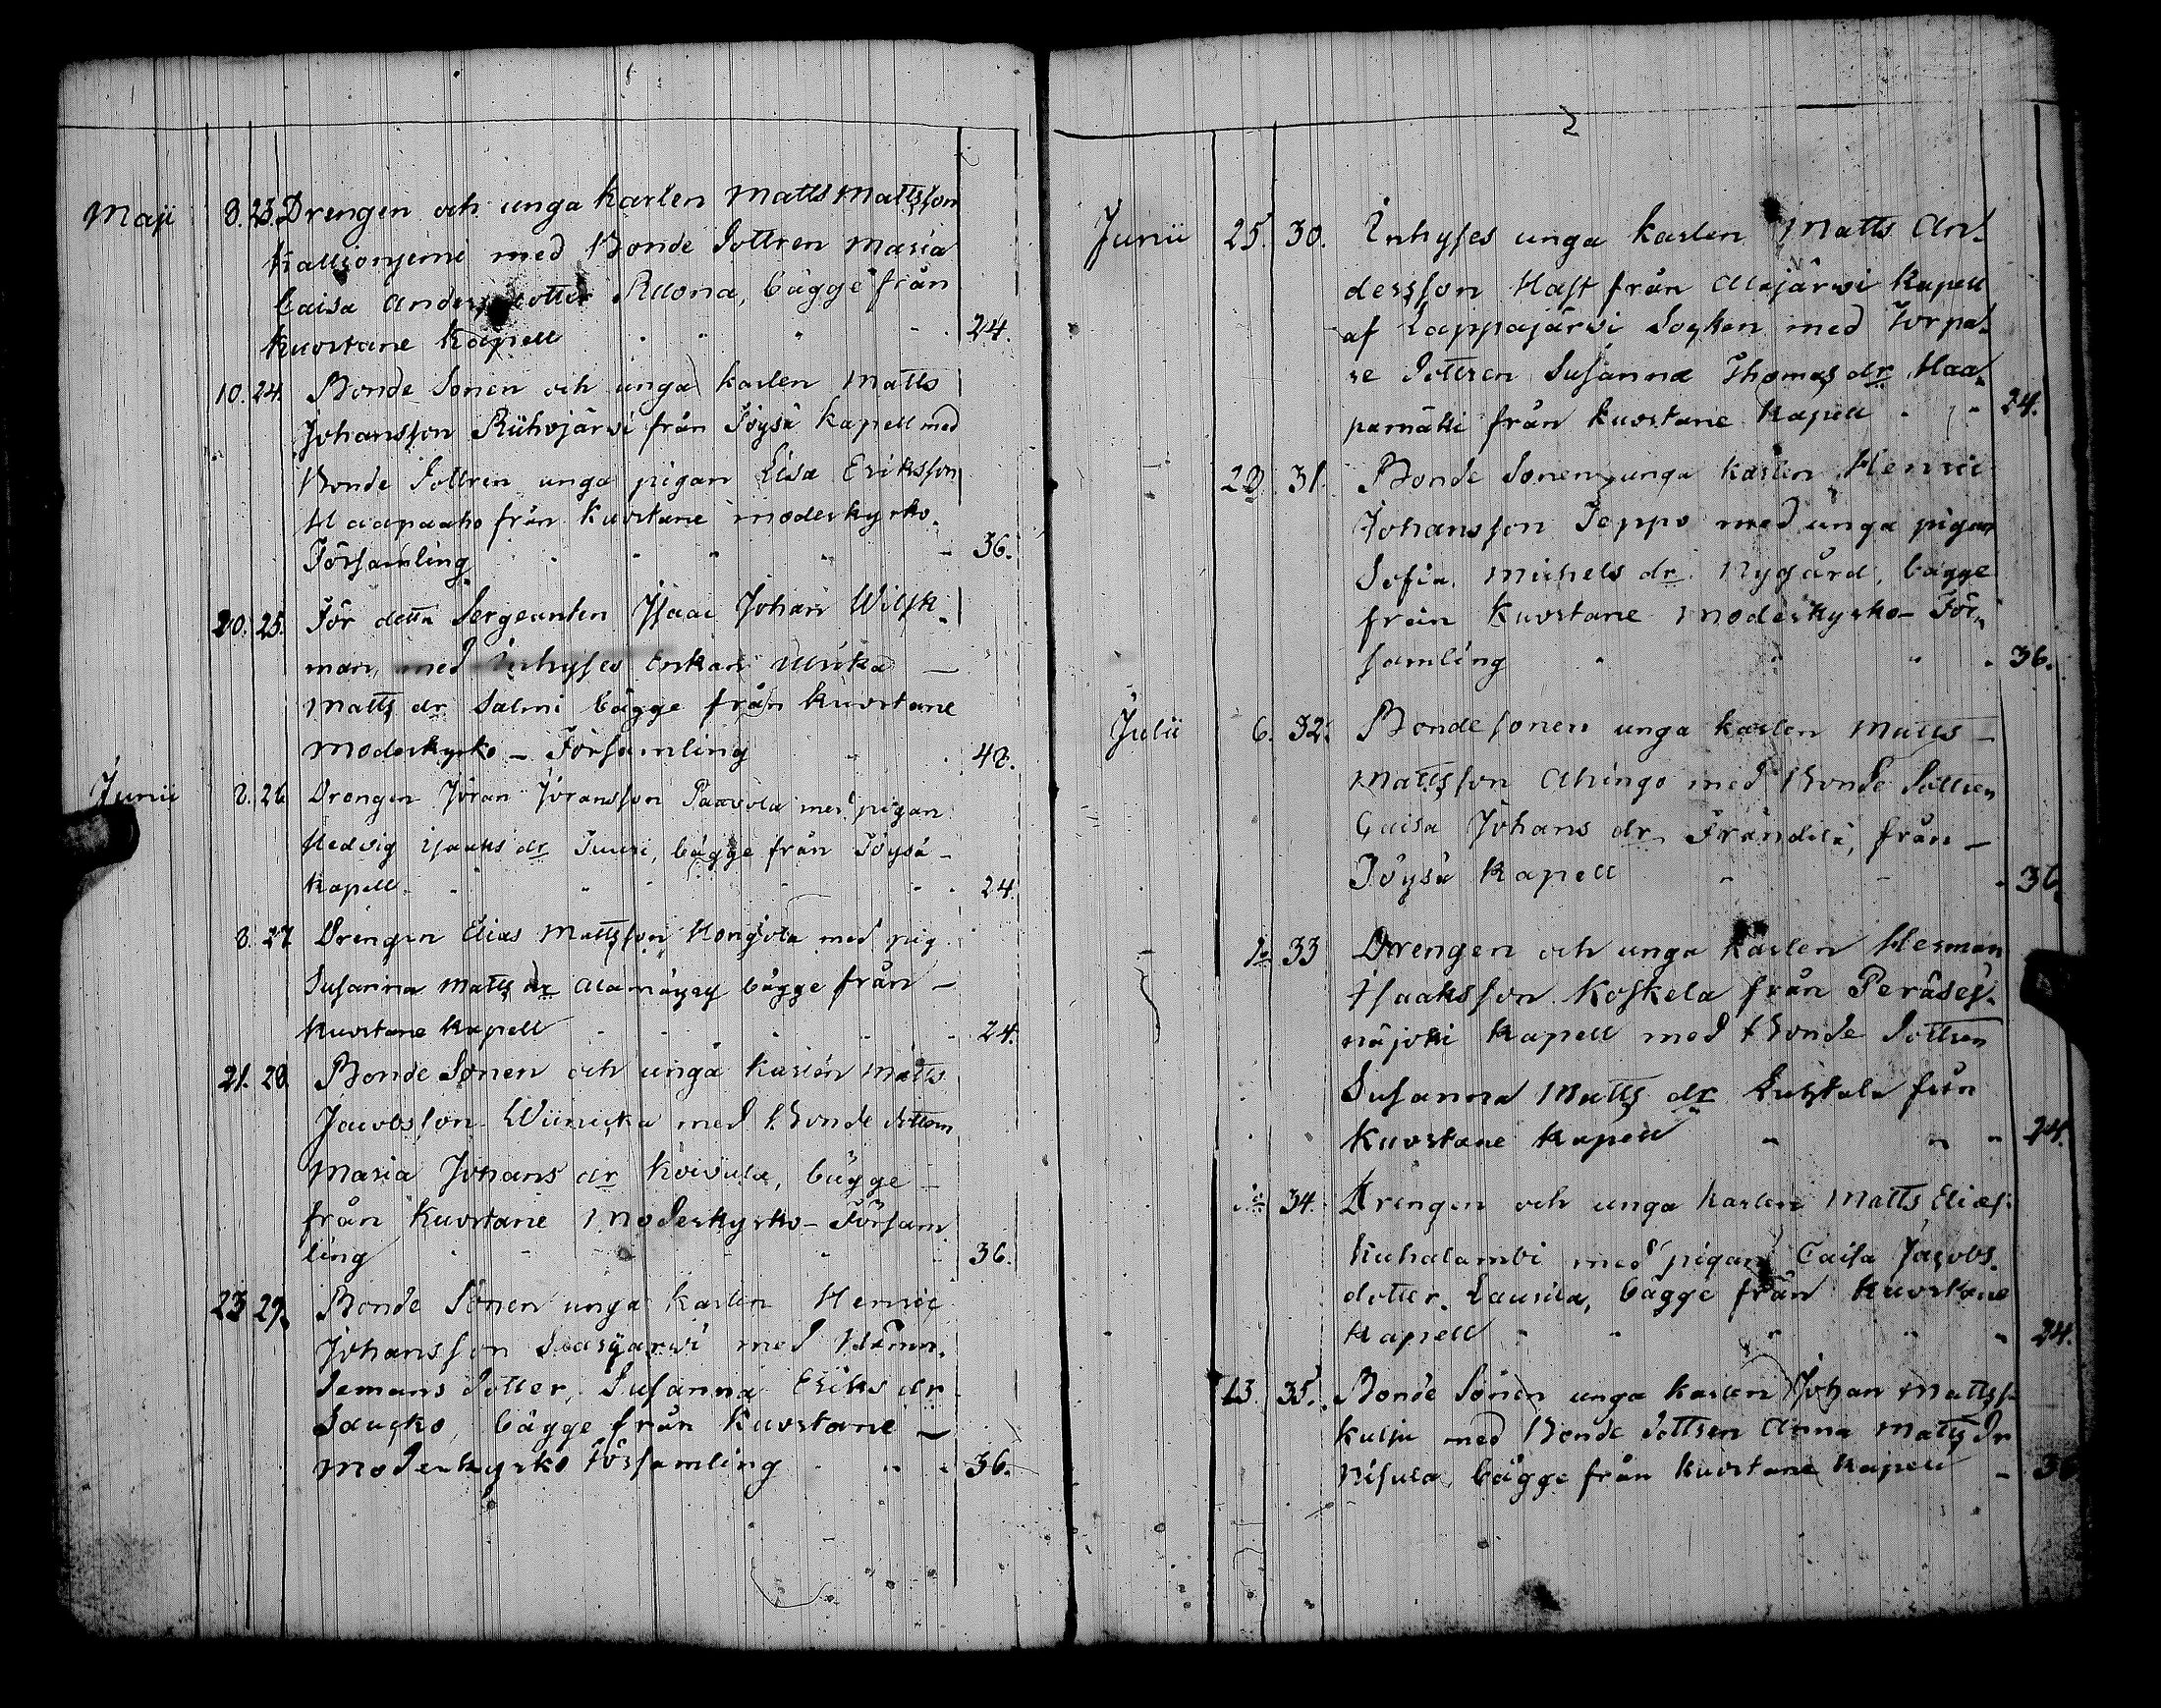 Maji 8. 23. Drengen och unga karlen Matts Mattsson
Kallionjemi med Bonde Dottren Maria
Caisa Anders dotter Rllona, bägge från
Kuortane Kapell 24.
10. 24. Bonde Sonen och unga karlen Matts
Johansson Riihojärvi från Töysä Kapell med
Bonde Dottren unga pigan Lisa Eriksson
Haapaaho från Kuortane moderkyrko-
Församling 36.
20. 25. För detta Sergeanten Isaac Johan Wilsk-
man, med Inhyses Enkan Ulrika
Matts dr Salmi bägge från Kuortane
Moderkyrko - Församling 48.
Junii 8. 26 Drengen Jöran Jöransson Paavola med pigan
Hedvig Isaaks dr Tuuri, bägge från Töysä
Kapell 24.
8. 27 Drengen Elias Mattsson Hongola med pig
Susanna Matts dr Alamäysy bägge från
Kuortane Kapell 24.
21. 28. Bonde Sonen och unga karlen Matts
Jacobsson Wiinicka med Bonde dottren
Maria Johans dr Koivula, bägge
från Kuortane Moderkyrko - Försam
ling 36.
23 29. Bonde Sonen unga karlen Henric
Johansson Saarijärvi med Nämn-
demans Dotter, Susanna Eriks dr
Saucko, bägge från Kuortane
Moderkyrko Församling 36.
Junii 25. 30. Inhyses unga karlen Matts An-
dersson Hast från Alajärvi Kapell
af Lappajärvi Socken med Torpa-
re Dottren Susanna Thomas dr Haa-
pamäki från Kuortane Kapell 24.
28 31. Bonde Sonen unga karlen Henric
Johansson Jeppo med unga pigan
Sofia Michels dr Nygård, bägge
från Kuortane Moderkyrko- För-
samling 36.
Julii 6. 32. Bonde sonen unga karlen Matts
Mattsson Ahingo med Bonde Dottren
Caisa Johans dr Frändilä, från
Töysä Kapell 36.
10 33 Drengen och unga karlen Herman
Isaaksson Koskela från Peräsei-
näjoki Kapell med Bonde Dottren
Susanna Matts dr från
Kuortane Kapell 24.
34. Drengen och unga karlen Matts Elias
Kuhalambi med pigan Caisa Jacobs
dotter Laurila, bägge från Kuortane
Kapell 24.
13. 35. Bonde Sonen unga karlen Johan Mattss
Kulju med Bonde Dottren Anna Matts Dr
Nisula, bägge från Kuortane Kapell 36